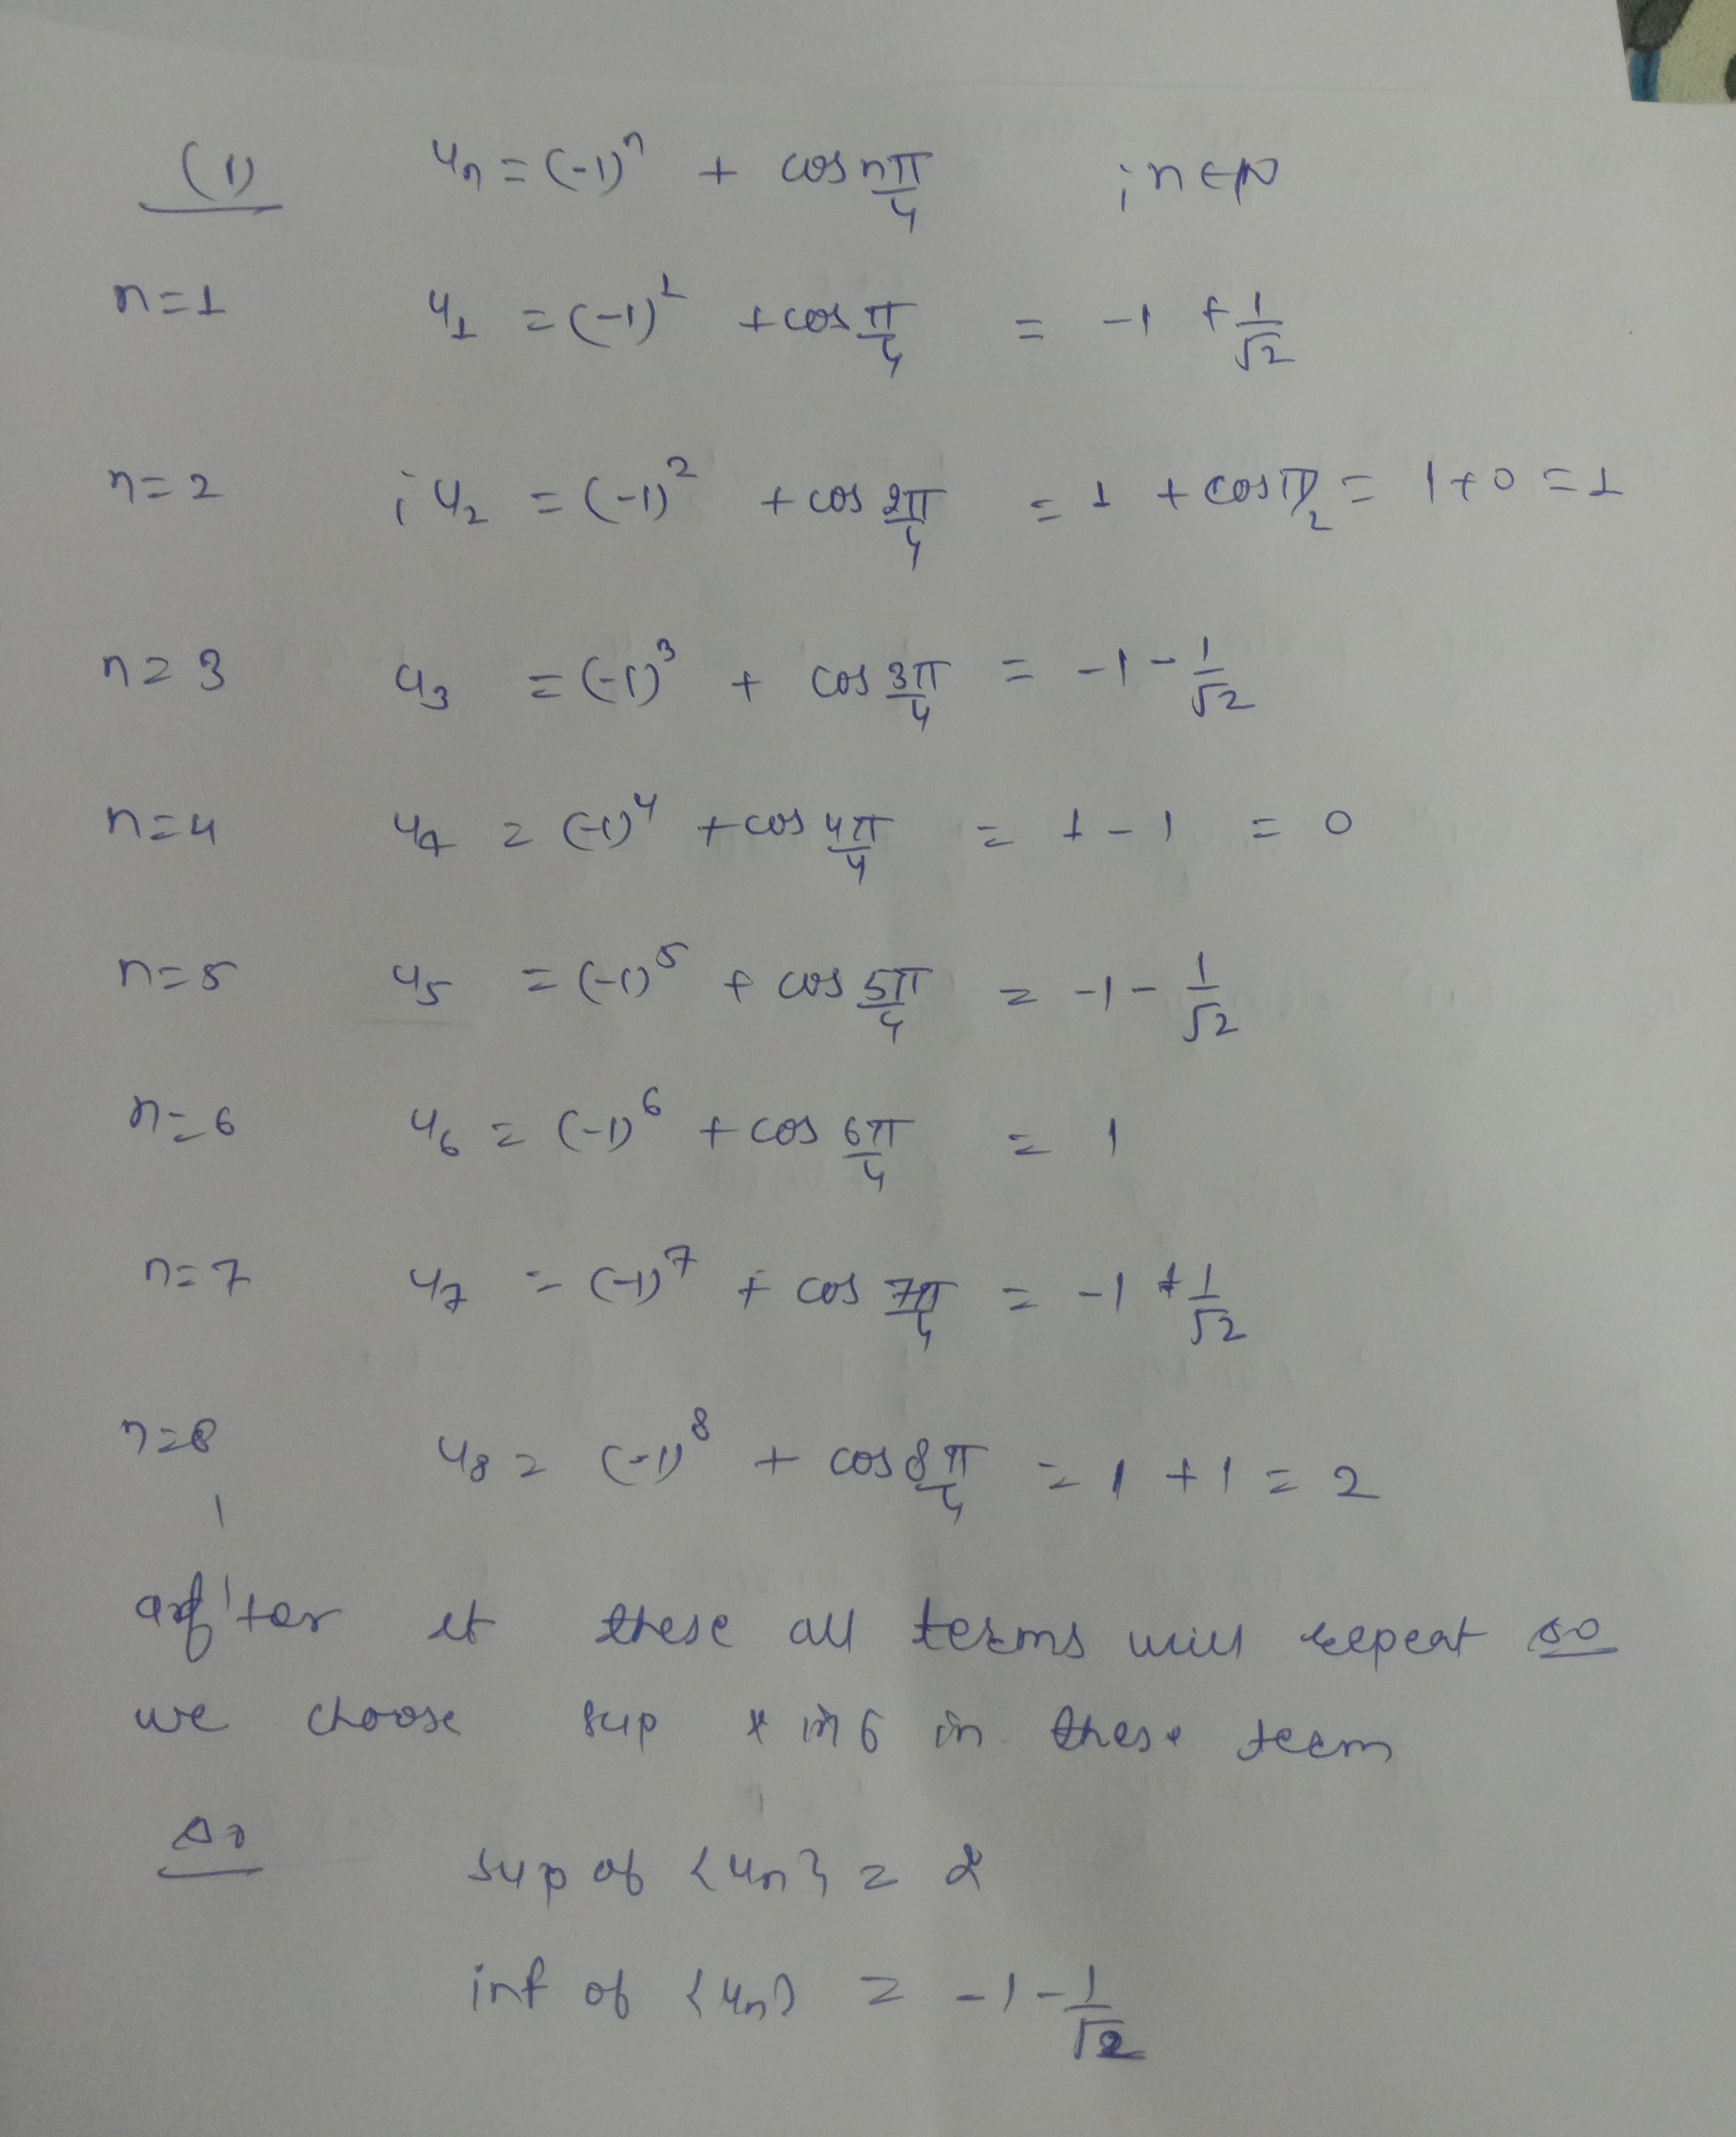 (1) u_n = (-1)^n + cos nπ/4 ; n ∈ N
n=1 u_1 = (-1)^1 + cos π/4 = -1 + 1/√2
n=2 ; u_2 = (-1)^2 + cos 2π/4 = 1 + cos π/2 = 1+0 = 1
n=3 u_3 = (-1)^3 + cos 3π/4 = -1 - 1/√2
n=4 u_4 = (-1)^4 + cos 4π/4 = 1 - 1 = 0
n=5 u_5 = (-1)^5 + cos 5π/4 = -1 - 1/√2
n=6 u_6 = (-1)^6 + cos 6π/4 = 1
n=7 u_7 = (-1)^7 + cos 7π/4 = -1 + 1/√2
n=8 u_8 = (-1)^8 + cos 8π/4 = 1 + 1 = 2
after it these all terms will repeat so
we choose sup & inf in these term
So
sup of {u_n} = 2
inf of {u_n} = -1 - 1/√2